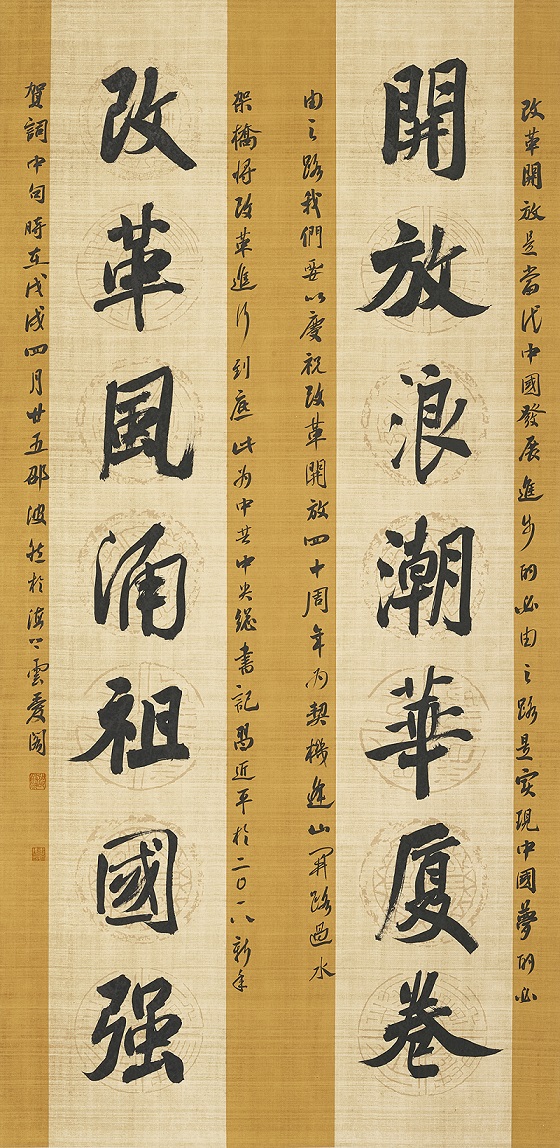 改革開放是當代中國發展進步的必由之路是实現中國夢的必
開放浪潮華厦卷
由之路我們要以慶祝改革開放四十周年为契機逢山開路過水
架橋将改革進行到底此为中共中央總書記習近平於二〇一八新年
改革風涌祖國强
賀詞中句時在戊戌四月廿五邵波然於海上雲憂閣